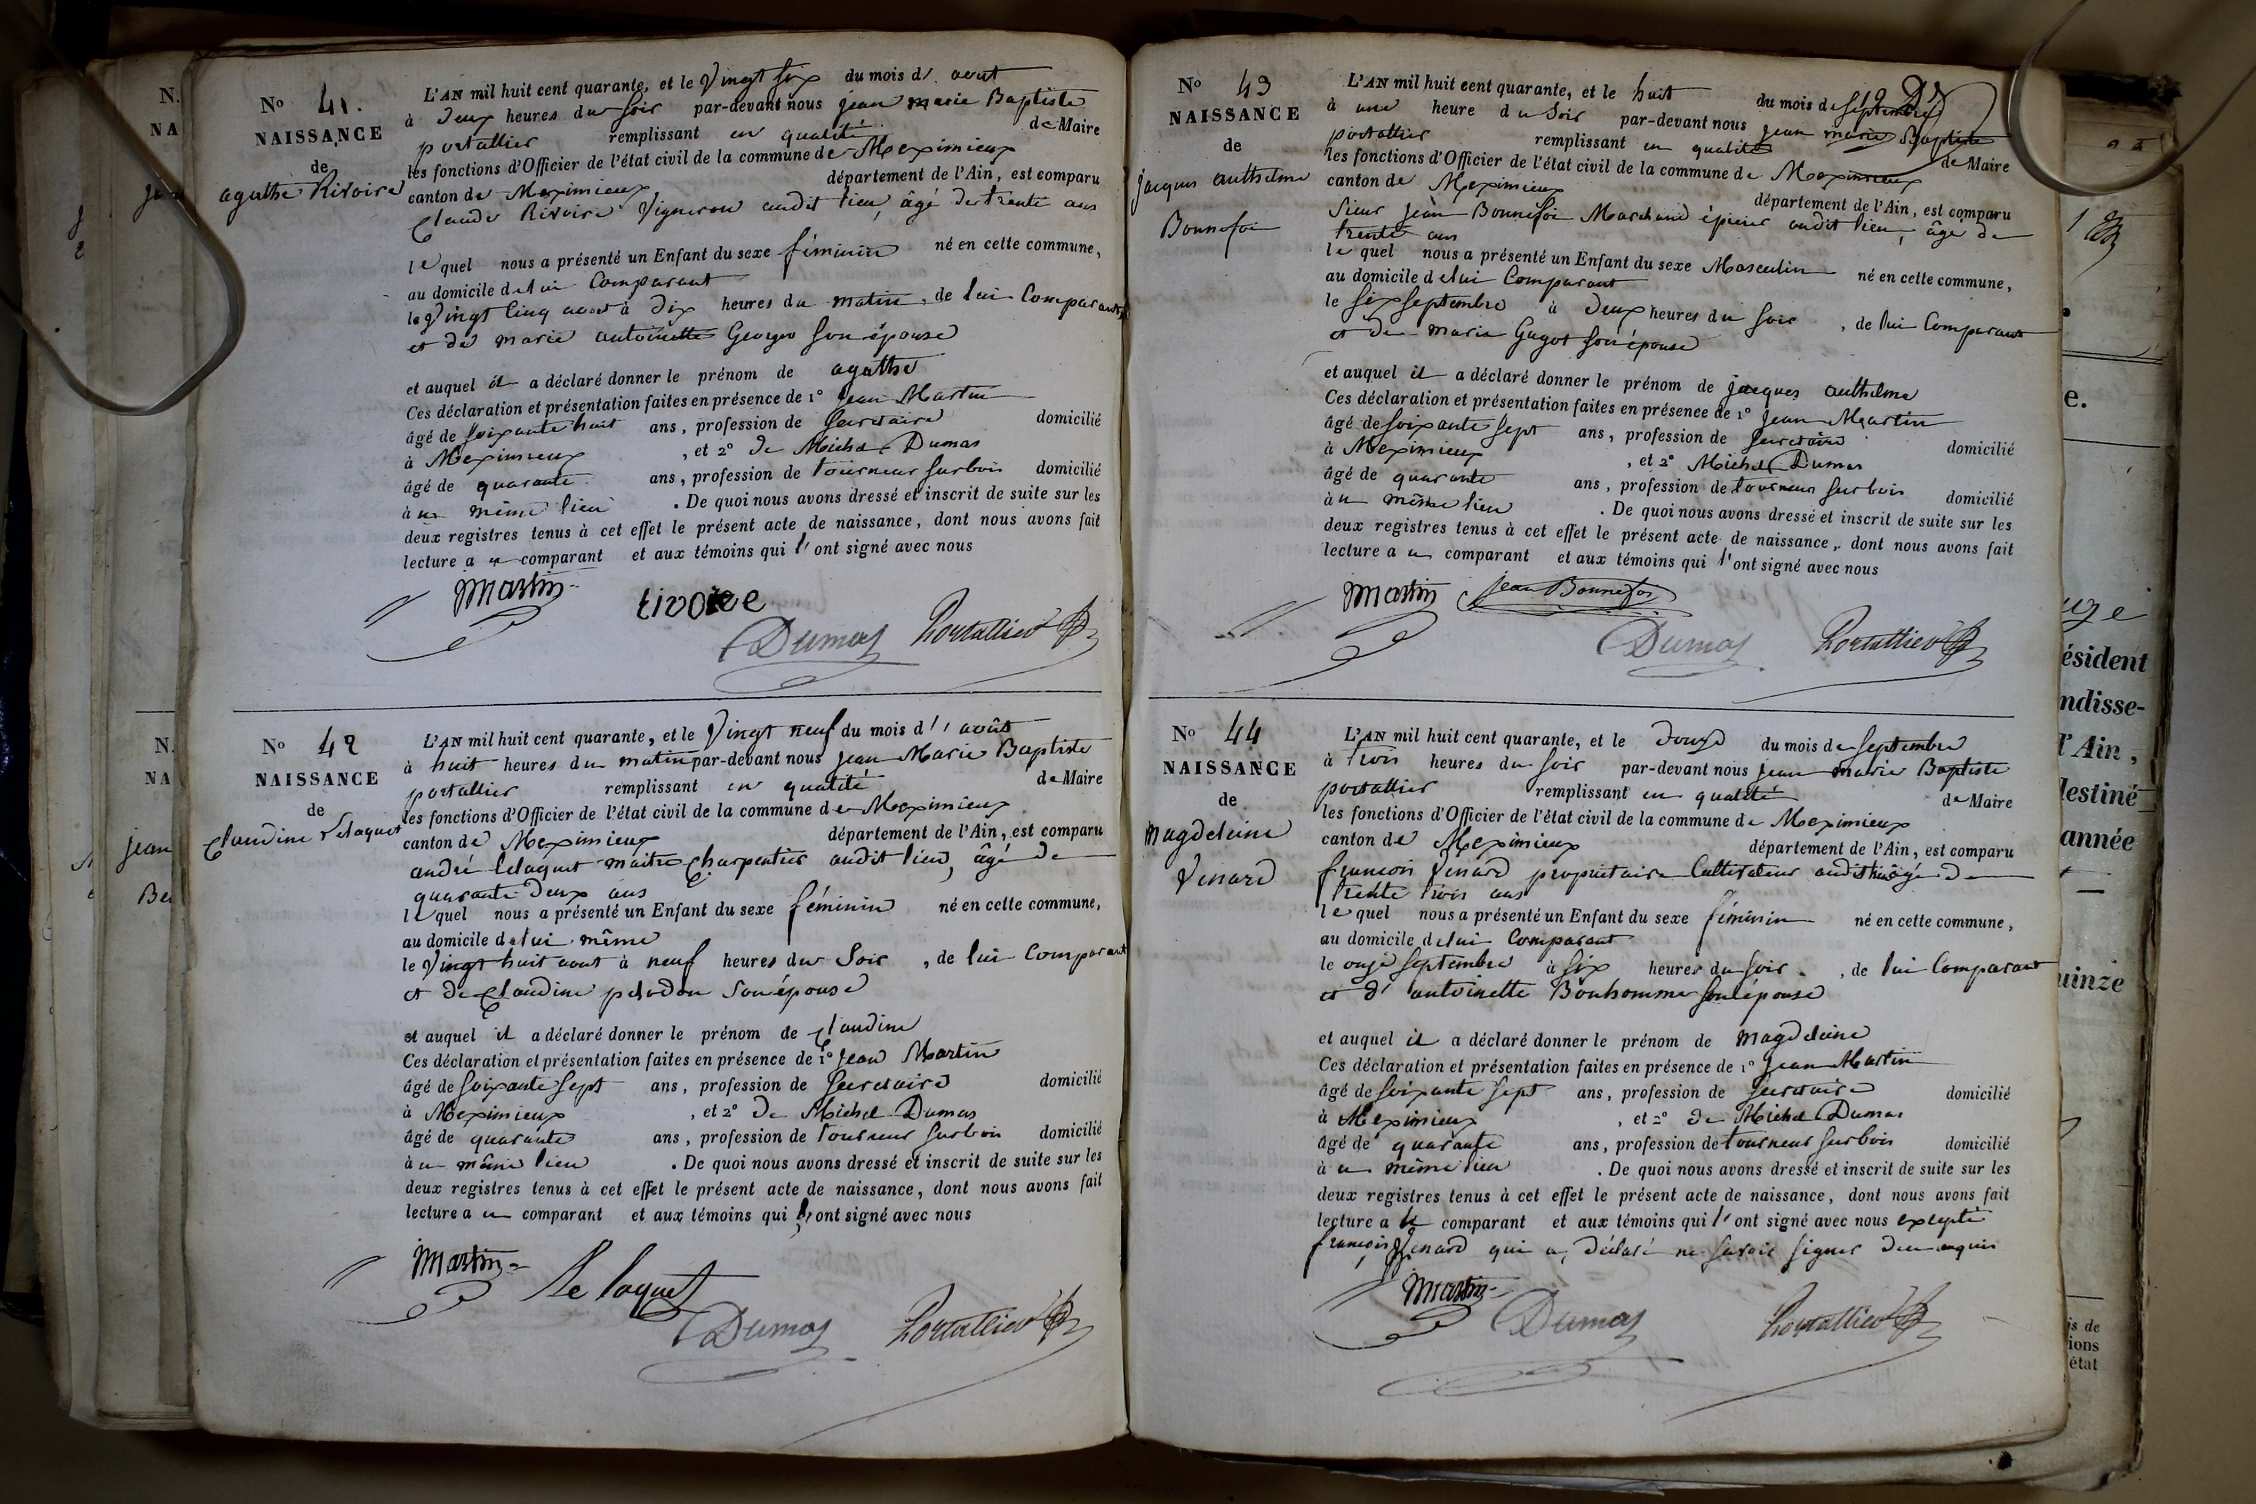 N° 41.
NAISSANCE
de
agathe Rivoire
L'AN mil huit cent quarante, et le Vingt six du mois d' aout
à Deux heures du soir par-devant nous jean marie Baptiste
portallier remplissant en qualité de Maire
les fonctions d'Officier de l'état civil de la commune de Meximieux
canton de Meximieux département de l'Ain, est comparu
Claude Rivoire Vigneron audit lieu, âgé de trente ans
lequel nous a présenté un Enfant du sexe féminin né en cette commune,
au domicile de lui Comparant
le Vingt Cinq aout à Dix heures du matin, de lui Comparant
et de marie antoinette Georges son épouse
et auquel il a déclaré donner le prénom de agathe
Ces déclaration et présentation faites en présence de 1° Jean Martin
âgé de soixante huit ans, profession de Secretaire domicilié
à Meximieux, et 2° de Michel Dumas
âgé de quarante ans, profession de tourneur sur bois domicilié
à u même lieu. De quoi nous avons dressé et inscrit de suite sur les
deux registres tenus à cet effet le présent acte de naissance, dont nous avons fait
lecture a u comparant et aux témoins qui l'ont signé avec nous
Martin
Rivoire
Dumas Portallier
N° 42
NAISSANCE
de
Claudine Lelaquet
L'AN mil huit cent quarante, et le Vingt neuf du mois d' août
à huit heures du matin par-devant nous jean Marie Baptiste
portallier remplissant en qualité de Maire
les fonctions d'Officier de l'état civil de la commune de Meximieux
canton de Meximieux département de l'Ain, est comparu
andré lelaquet maitre Charpentier audit lieu, âgé de
quarante Deux ans
lequel nous a présenté un Enfant du sexe féminin né en cette commune,
au domicile de lui même
le Vingt huit aout à neuf heures du Soir, de lui Comparant
et de Claudine pelodon son épouse
et auquel il a déclaré donner le prénom de Claudine
Ces déclaration et présentation faites en présence de 1° Jean Martin
âgé de soixante sept ans, profession de Secretaire domicilié
à Meximieux, et 2° De Michel Dumas
âgé de quarante ans, profession de tourneur sur bois domicilié
à u même lieu. De quoi nous avons dressé et inscrit de suite sur les
deux registres tenus à cet effet le présent acte de naissance, dont nous avons fait
lecture a u comparant et aux témoins qui l'ont signé avec nous
Martin
Le laquet
Dumas Portallier
N° 43
NAISSANCE
de
jacques anthelme
Bonnefoi
L'AN mil huit cent quarante, et le huit du mois de Septembre
à une heure du Soir par-devant nous jean marie Baptiste
portallier remplissant en qualité de Maire
les fonctions d'Officier de l'état civil de la commune de Meximieux
canton de Meximieux département de l'Ain, est comparu
Sieur Jean Bonnefoi Marchand épicier audit lieu, âgé de
trente ans
lequel nous a présenté un Enfant du sexe Masculin né en cette commune,
au domicile de lui Comparant
le six septembre à Deux heures du soir, de lui Comparant
et de marie Guyot son épouse
et auquel il a déclaré donner le prénom de jacques anthelme
Ces déclaration et présentation faites en présence de 1° Jean Martin
âgé de soixante sept ans, profession de Secretaire domicilié
à Meximieux, et 2° Michel Dumas
âgé de quarante ans, profession de tourneur sur bois domicilié
à u même lieu. De quoi nous avons dressé et inscrit de suite sur les
deux registres tenus à cet effet le présent acte de naissance, dont nous avons fait
lecture a u comparant et aux témoins qui l'ont signé avec nous
Martin jean Bonnefoi
Dumas Portallier
N° 44
NAISSANCE
de
Magdeleine
Venard
L'AN mil huit cent quarante, et le Douze du mois de Septembre
à trois heures du soir par-devant nous jean marie Baptiste
portallier remplissant en qualité de Maire
les fonctions d'Officier de l'état civil de la commune de Meximieux
canton de Meximieux département de l'Ain, est comparu
françois Venard propriétaire Cultivateur audit lieu âgé De
trente trois ans
lequel nous a présenté un Enfant du sexe féminin né en cette commune,
au domicile de lui Comparant
le onze Septembre à six heures du soir, de lui Comparant
et d' antoinette Bonhomme son épouse
et auquel il a déclaré donner le prénom de Magdeleine
Ces déclaration et présentation faites en présence de 1° Jean Martin
âgé de soixante sept ans, profession de Secretaire domicilié
à Meximieux, et 2° de Michel Dumas
âgé de quarante ans, profession de tourneur sur bois domicilié
à u même lieu. De quoi nous avons dressé et inscrit de suite sur les
deux registres tenus à cet effet le présent acte de naissance, dont nous avons fait
lecture a u comparant et aux témoins qui l'ont signé avec nous excepté
françois Venard qui a déclaré ne savoir signer Deu enquis
Martin
Dumas Portallier
ésident
ndisse-
l'Ain,
destiné
année
uinze